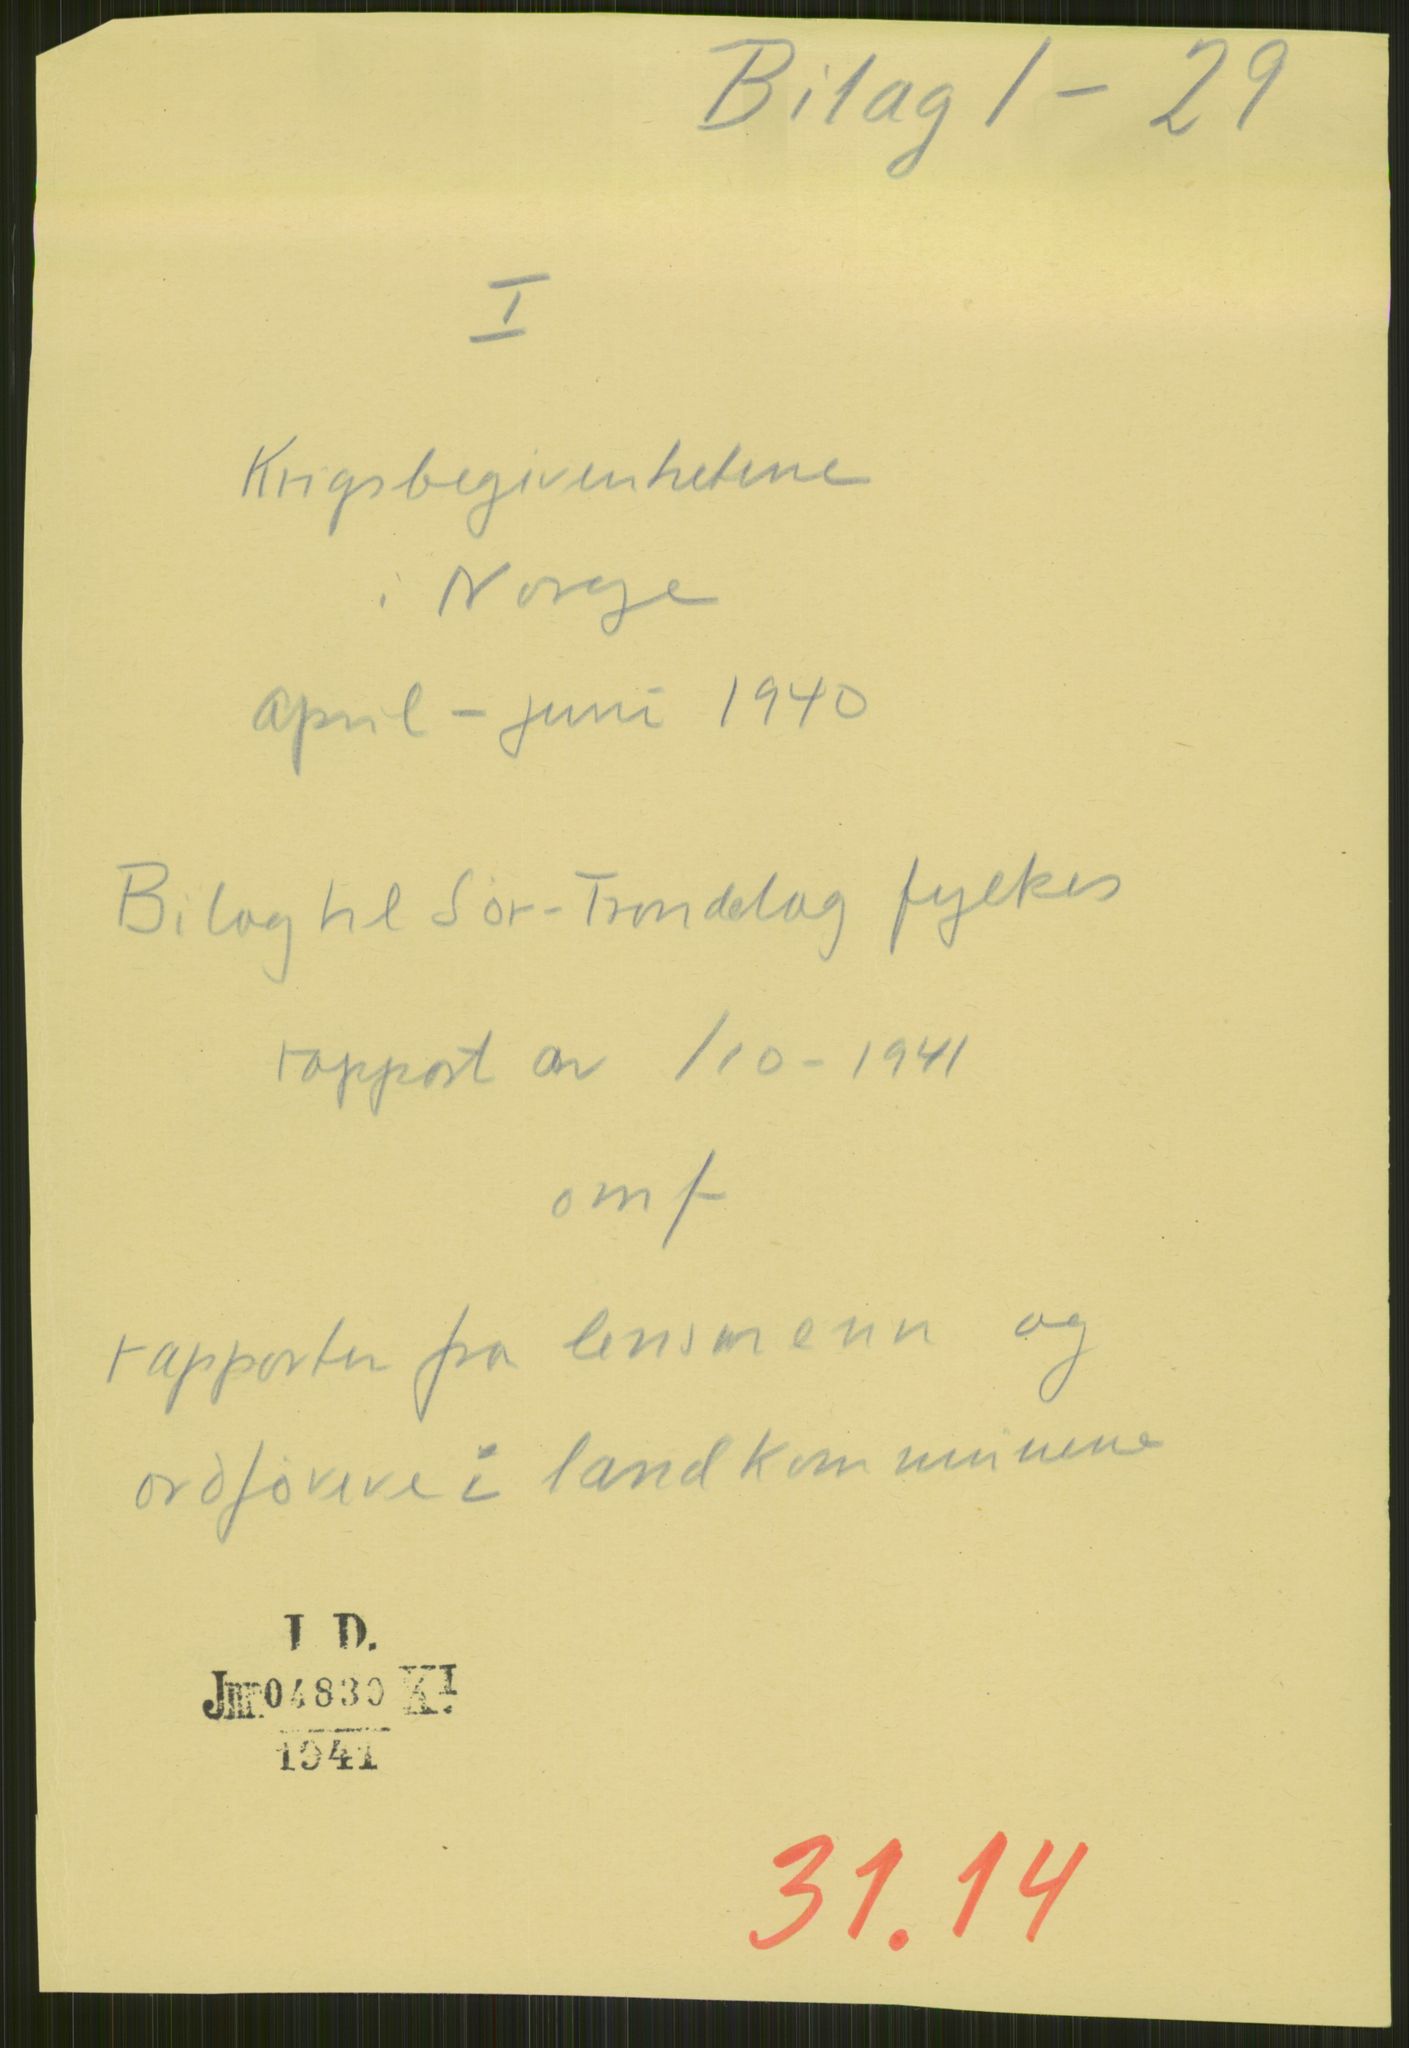 Bilag 1 - 29
I
Krigsbegivenhetene
i Norge
april - juni 1940
Bilag til Sør-Trøndelag fylkes
rapport av /10 - 1941
omf
rapporter fra lensmenn og
ordførere i landkommunene
I D.
Jnr. 04830 KI.
1941
31.14